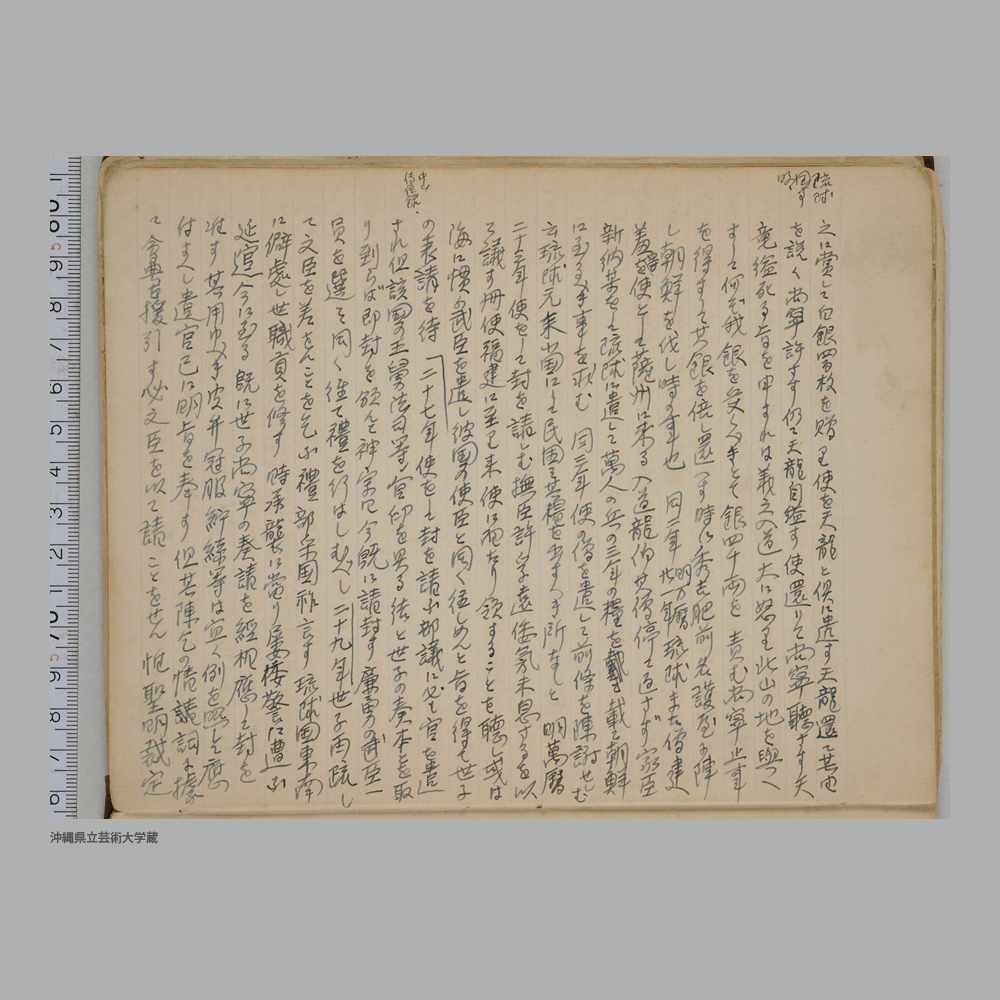 之に賞して白銀四百枚を贈り使を天龍と倶に遣す天龍還て其由
を説く尚寧許さず仍て天龍自縊す使還りて尚寧聴さず天
竜縊死る旨を申すれは義久入道大に怒り此山の地を與へ
すして何ぞ我銀を受へきとて銀四千両を責む尚寧止事
を得すして其銀を倍し還へす時に秀吉肥前名護屋に陣
し朝鮮を伐し時の事也 同二年 明万暦 琉球また僧建
善を使として薩州に来る 入道龍伯其僧停て返さず家臣
新納某をして琉球に遣して萬人の兵の三年の糧を載て朝鮮
に至るへき事を求む 同三年使僧を遣して前條を陳謝せしむ
云琉球元来小国にして民困し其糧を出すへき所なしと 明萬暦
二十三年使をして封を請しむ撫臣許孚遠倭氛未息さるを以
て議す冊使福建に至り来使に抱たり領することを聴し或は
海に慣る武臣を遣し彼国の使臣と同く往しめんと旨を得て世子
の表請を待 二十七年使をして封を請ふ部議に必す官を遣
され但該国の王舅法司等官印を具る結と世子の奏本とを取
り到らば即封を領んと神宗曰今既に請封す廉勇の武臣一
員を選て同く往て禮を行はしむべし 二十九年世子再疏し
て文臣を差さんことを乞ふ禮部余国祚言す琉球国東南
に僻處し世職貢を修す 時承襲に當り屡倭警に遭ふ
延遲今に至る 既に世子尚寧の奏請を經 應して封を
准す 其用ゆへき皮弁冠服紵絲等は宜く例を照して應
付すへし遣官已に明旨を奉す 但其陳乞の情請詞に據
て會典を援引す必文臣を以て請ことをせん 恒聖明裁定
琉球
国す
略
中山
傳信録
沖縄県立芸術大学蔵